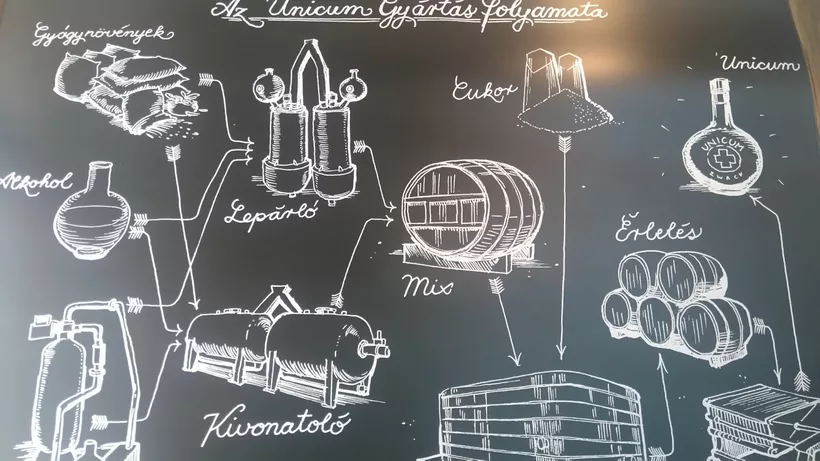 Az Unicum Gyártás folyamata
Gyógynövények
Cukor
Unicum
Alkohol
Lepárló
UNICUM
ZWACK
Érlelés
Mix
Kivonatoló